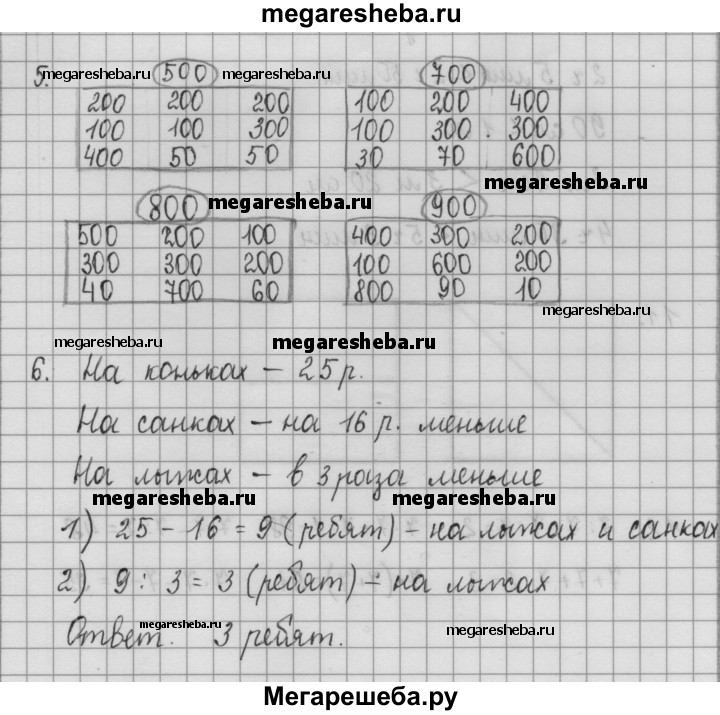 megaresheba.ru
5. megaresheba.ru 500 megaresheba.ru 700
200 200 200 100 200 400
100 100 300 100 300 . 300
400 50 50 30 70 600
megaresheba.ru
800 megaresheba.ru 900
500 200 100 400 300 200
300 300 200 100 600 200
40 700 60 800 90 10
megaresheba.ru
megaresheba.ru megaresheba.ru
6. На коньках – 25 р.
На санках – на 16 р. меньше
На лыжах – в 3 раза меньше
megaresheba.ru megaresheba.ru
1) 25 - 16 = 9 (ребят) – на лыжах и санках
2) 9 : 3 = 3 (ребят) – на лыжах
megaresheba.ru
Ответ. 3 ребят. megaresheba.ru
Мегарешеба.ру